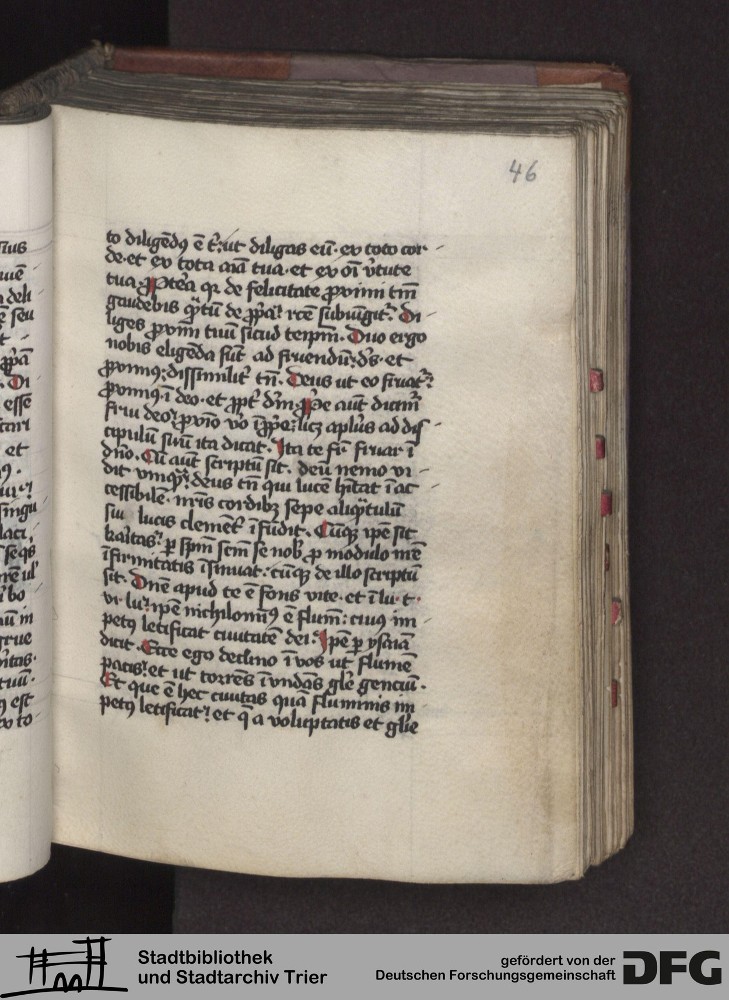 46
to diligēdꝯ ē t᷒: ut diligas eū · ex toto cor
de · et ex tota aīa tua · et ex oī v̾tute
tua · ꝓptea qr de felicitate ꝓximi tm̄
gaudebis
liges ꝓxim̄ tuū sicud teipm̄ · Duo ergo
nobis eligēda sūt ad fruendū: ds̄ · et
ꝓximꝯ: dissimilit̾ tn̄ · Deus ut eo fruat᷒:
ꝓximꝯ · ī deo · et ꝓpt̾ dm̄
frui deo: ꝓxīo v̊o
cipulū suū ita dicat · Ita te fr̄ fruar ī
dn̄o · Cū aut̄ scriptū sit · deū nemo vi
dit vmꝙ̄: deus tn̄ qui lucē hītat ī ac
cessibilē · nr̄is cordibꝫ sepe aliꝙ̄tulū
sui lucis clement᷒ īfūdit · Cūqꝫ ipē sit
ꝑ sp̄m scm̄ se nob̄ ꝓ modulo
īfirmitatis īsinuat: cūqꝫ de illo scriptū
sit · Dn̄e apud te ē fons vite · et ī lu · t ·
vi · lu: ipē nichilomīꝯ ē flum̄: cuiꝯ im
petꝯ letificat ciuitatē dei: Ipē ꝑ ysaiā
dicit · Ecce ego declino ī vos ut flumē
pacis: et ut torrēs īundās glē genciū ·
Et que ē hec ciuitas quā fluminis im
petꝯ letificat: et q̄ a voluptatis et glīe
Stadtbibliothek
und Stadtarchiv Trier
gefördert von der
Deutschen Forschungsgemeinschaft
DFG